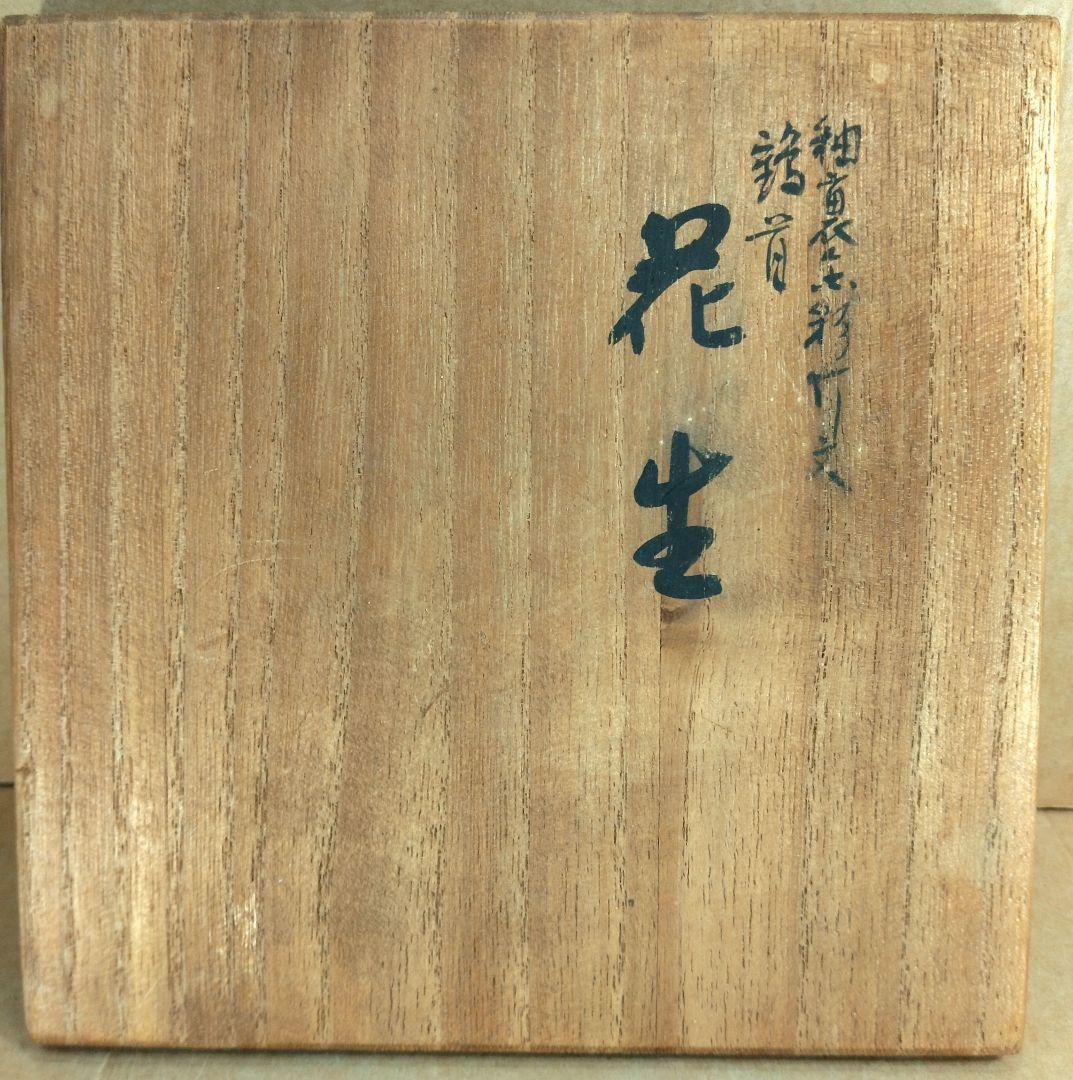 釉裏金彩竹文
鶴首
花生